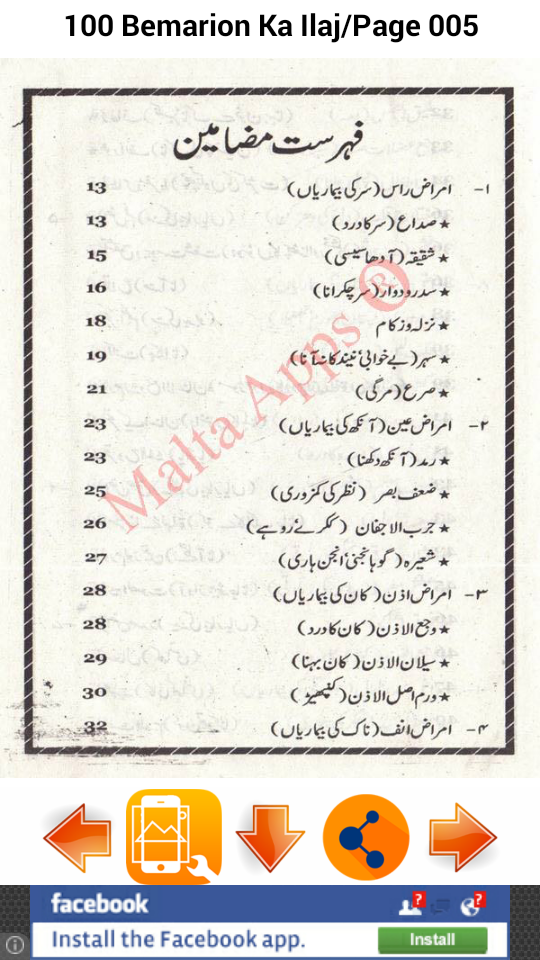 100 Bemarion Ka Ilaj/Page 005
فہرست مضامین
۱- امراض راس (سر کی بیماریاں) 13
★ صداع (سر کا درد) 13
★ شقیقہ (آدھا سیسی) 15
★ سدر و دوار (سر چکرانا) 16
★ نزلہ و زکام 18
★ سہر (بے خوابی/نیند کا نہ آنا) 19
★ صرع (مرگی) 21
۲- امراض عین (آنکھ کی بیماریاں) 23
★ رمد (آنکھ دکھنا) 23
★ ضعف بصر (نظر کی کمزوری) 25
★ جرب الاجفان (ککرے روہے) 26
★ شعیرہ (گوہانجنی/انجن ہاری) 27
۳- امراض اذن (کان کی بیماریاں) 28
★ وجع الاذن (کان کا درد) 28
★ سیلان الاذن (کان بہنا) 29
★ ورم اصل الاذن (کنپھیڑ) 30
۴- امراض انف (ناک کی بیماریاں) 32
Malta Apps ®
facebook
Install the Facebook app.
Install